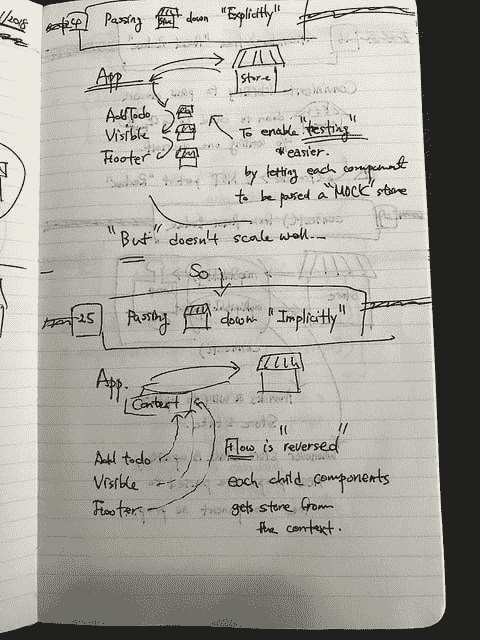 24 Passing down "Explicitly"
App Store
Add Todo
Visible
Footer
To enable "testing"
easier.
by letting each component
to be passed a "MOCK" store
"But" doesn't scale well...
So
25 Passing down "Implicitly"
App.
Context
Add todo
Visible
Footer
"Flow is "reversed"
each child components
gets store from
the context.